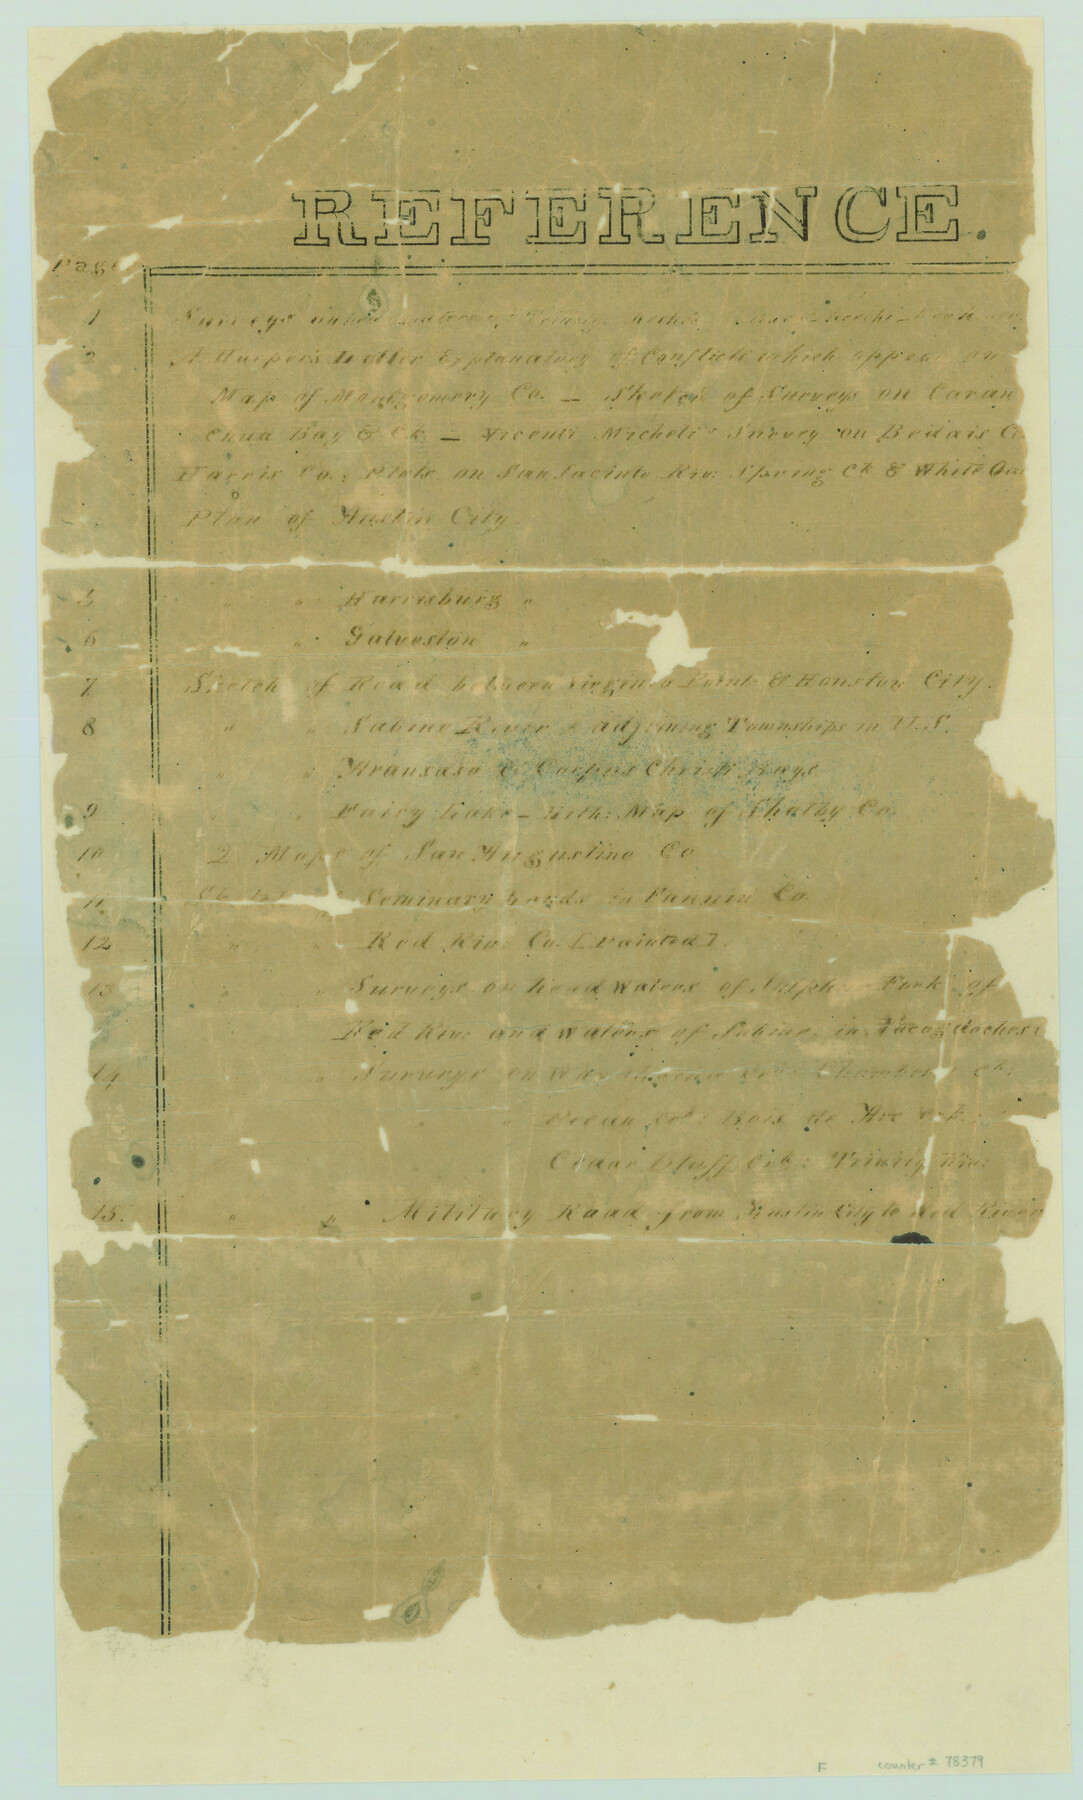 REFERENCE.
Page
1 Surveys on head waters of
2 A. Harper's Letter Explanatory of Conflicts which appear on
Map of Montgomery Co. — Sketch of Surveys on Caran
chua Bay & Ck. — Vicenti Micheli's Survey on Bedais C
Harris Co.: Plots. on San Jacinto Riv: Spring Ck & White Oak
Plan of Austin City.
5 " " Harrisburg "
6 " Galveston "
7 Sketch of Road between Virginia Point & Houston City.
8 " " Sabine River & adjoining Townships in U.S.
" " Aransaso & Corpus Christi Bays
9 " Fairy Lake — with Map of Shelby Co.
10 2 Maps of San Augustine Co
11. Sketch " Seminary Lands in Fannin Co.
12 " " Red Riv. Co. [Painted].
13 " " Surveys on head waters of Sulph: Fork of
Red Riv: and waters of Sabine in Nacogdoches:
14 " Surveys on Chambers Ck:
" Pecan Crk: Bois de Arc Crk.:
Cedar Bluff Crk: Trinity Riv:
15. " " Military Road from Austin City to Red River
F counter # 78379